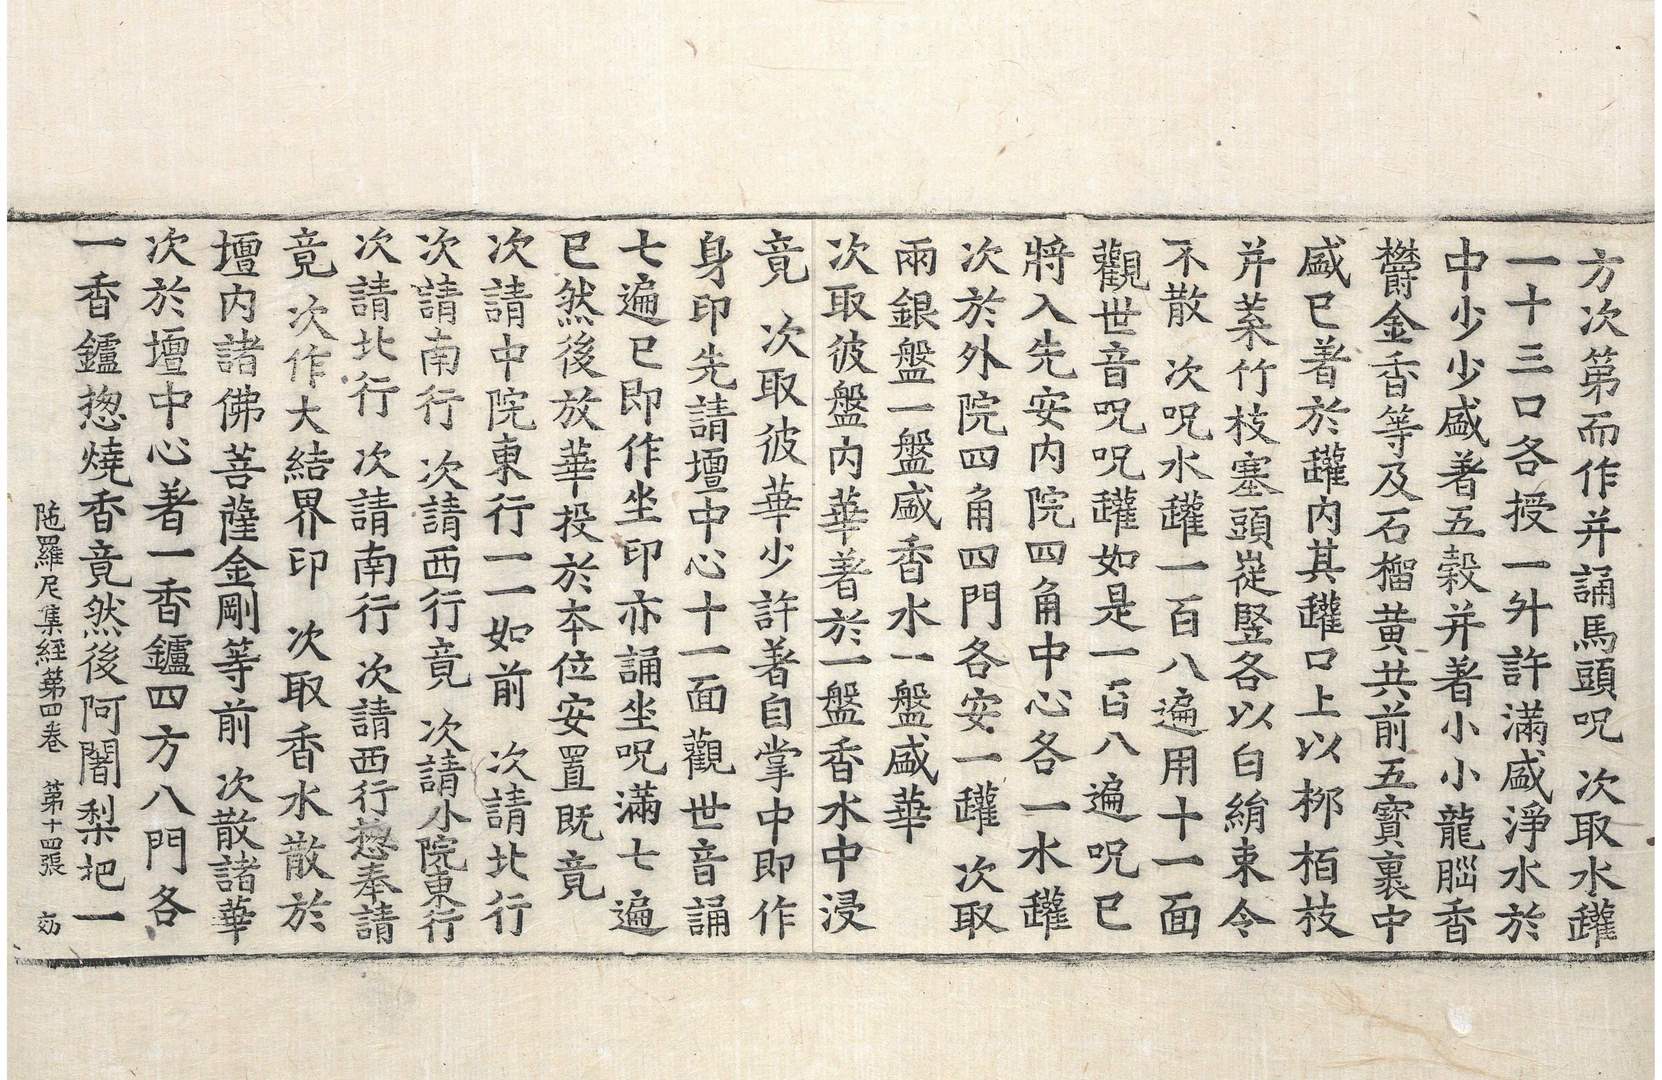 方次第而作并誦馬頭呪 次取水罐
一十三口各授一升許滿盛淨水於
中少少盛著五穀并著小小龍腦香
欝金香等及石榴黄共前五寶裹中
盛已著於罐内其罐口上以栁栢枝
并葉竹枝塞頭嵸竪各以白絹束令
不散 次呪水罐一百八遍用十一面
觀世音呪呪罐如是一百八遍呪已
將入先安内院四角中心各一水罐
次於外院四角四門各安一罐 次取
兩銀盤一盤盛香水一盤盛華
次取彼盤内華著於一盤香水中浸
竟 次取彼華少許著自掌中即作
身印先請壇中心十一面觀世音誦
七遍已即作坐印亦誦坐呪滿七遍
已然後放華投於本位安置既竟
次請中院東行一一如前 次請北行
次請南行 次請西行竟 次請小院東行
次請北行 次請南行 次請西行揔奉請
竟 次作大結界印 次取香水散於
壇内諸佛菩薩金剛等前 次散諸華
次於壇中心著一香鑪四方八門各
一香鑪揔燒香竟然後阿闍梨把一
陁羅尼集經第四卷 第十四張 㓛